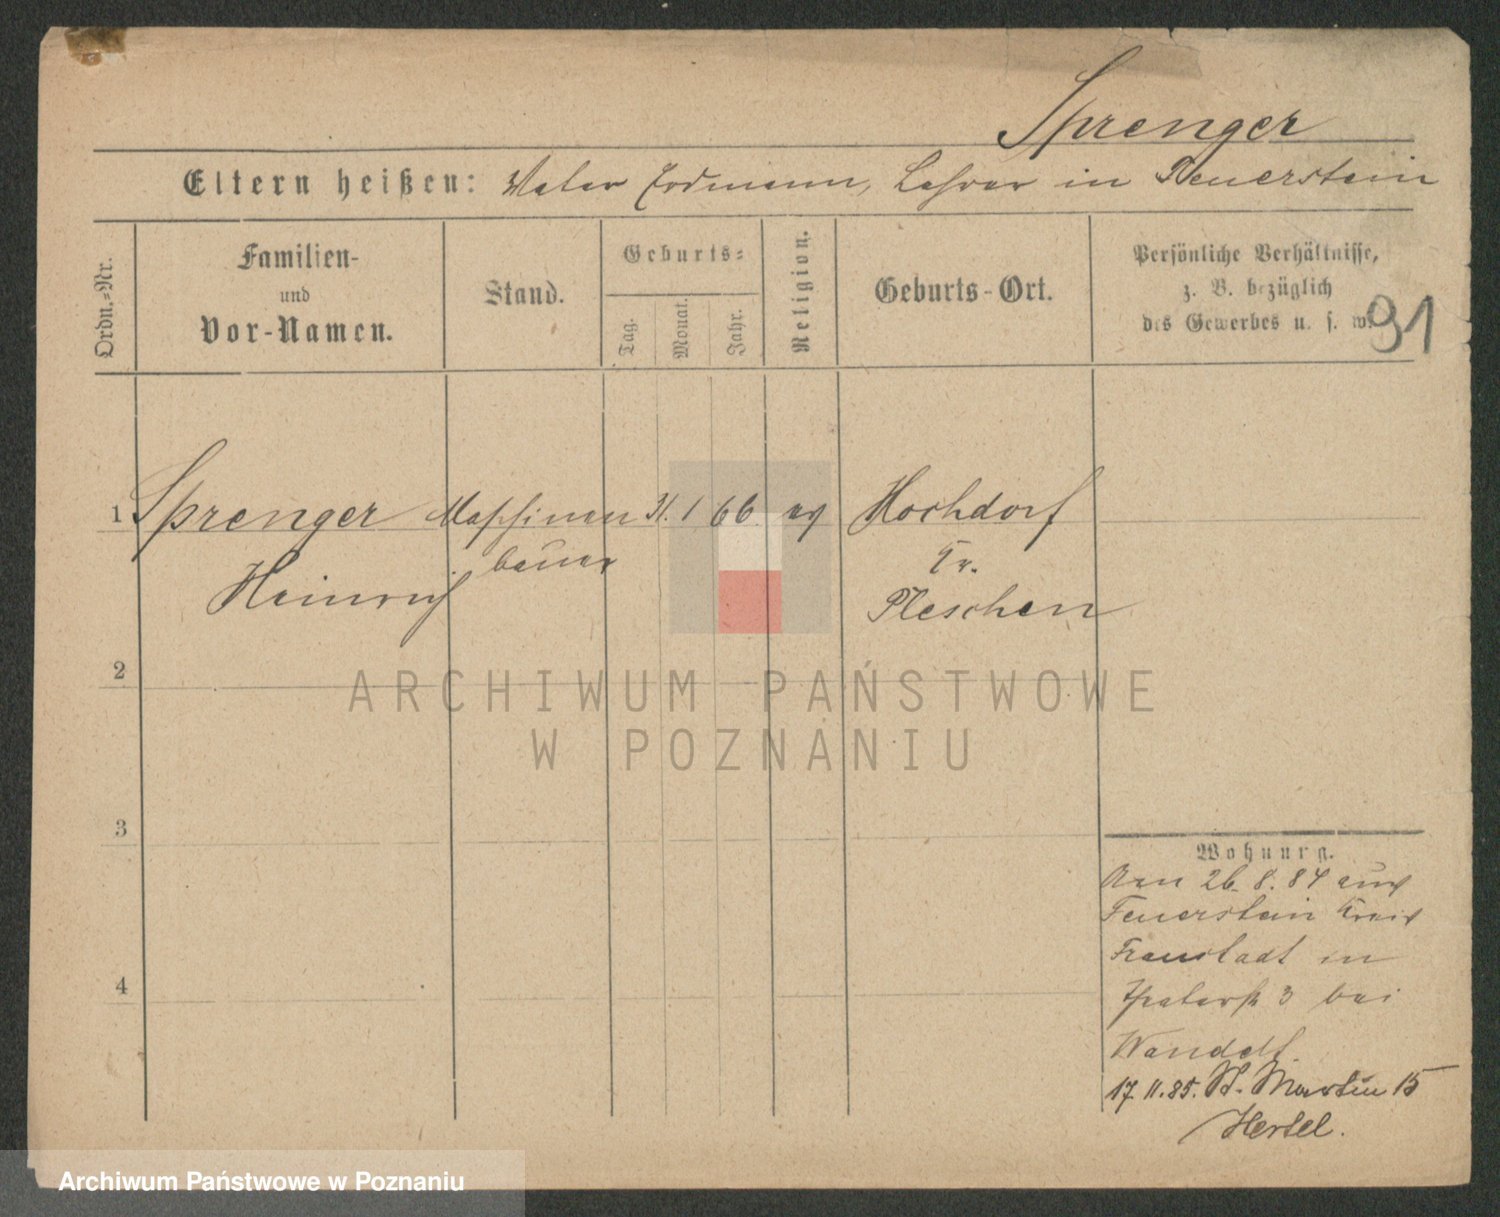 Sprenger
Eltern heißen: Vater Erdmann, Lehrer in Feuerstein
Ordn.=Nr.
Familien-
und
Vor-Namen.
Stand.
Geburts=
Tag.
Monat.
Jahr.
Religion.
Geburts-Ort.
Persönliche Verhältnisse,
z. B. bezüglich
des Gewerbes u. s. w.
91
1 Sprenger Maschinen 31. 1 66 ev Hochdorf
Heinrich bauer Kr.
Pleschen
2
3
4
Wohnung.
Den 26. 8. 84 aus
Feuerstein Kreis
Fraustadt in
Theaterstr 3 bei
Wandelt.
17. 11. 85. St. Martin 15
Hertel.
ARCHIWUM PAŃSTWOWE
W POZNANIU
Archiwum Państwowe w Poznaniu